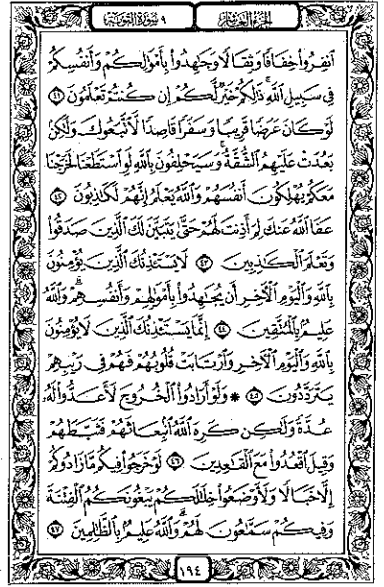 الجزء العاشر
٩ سورة التوبة
ٱنفِرُوا۟ خِفَافًا وَثِقَالًا وَجَٰهِدُوا۟ بِأَمْوَٰلِكُمْ وَأَنفُسِكُمْ
فِى سَبِيلِ ٱللَّهِ ذَٰلِكُمْ خَيْرٌ لَّكُمْ إِن كُنتُمْ تَعْلَمُونَ ٤١
لَوْ كَانَ عَرَضًا قَرِيبًا وَسَفَرًا قَاصِدًا لَّٱتَّبَعُوكَ وَلَٰكِنۢ
بَعُدَتْ عَلَيْهِمُ ٱلشُّقَّةُ وَسَيَحْلِفُونَ بِٱللَّهِ لَوِ ٱسْتَطَعْنَا لَخَرَجْنَا
مَعَكُمْ يُهْلِكُونَ أَنفُسَهُمْ وَٱللَّهُ يَعْلَمُ إِنَّهُمْ لَكَٰذِبُونَ ٤٢
عَفَا ٱللَّهُ عَنكَ لِمَ أَذِنتَ لَهُمْ حَتَّىٰ يَتَبَيَّنَ لَكَ ٱلَّذِينَ صَدَقُوا۟
وَتَعْلَمَ ٱلْكَٰذِبِينَ ٤٣ لَا يَسْتَـْٔذِنُكَ ٱلَّذِينَ يُؤْمِنُونَ
بِٱللَّهِ وَٱلْيَوْمِ ٱلْـَٔاخِرِ أَن يُجَٰهِدُوا۟ بِأَمْوَٰلِهِمْ وَأَنفُسِهِمْ وَٱللَّهُ
عَلِيمٌۢ بِٱلْمُتَّقِينَ ٤٤ إِنَّمَا يَسْتَـْٔذِنُكَ ٱلَّذِينَ لَا يُؤْمِنُونَ
بِٱللَّهِ وَٱلْيَوْمِ ٱلْـَٔاخِرِ وَٱرْتَابَتْ قُلُوبُهُمْ فَهُمْ فِى رَيْبِهِمْ
يَتَرَدَّدُونَ ٤٥ * وَلَوْ أَرَادُوا۟ ٱلْخُرُوجَ لَأَعَدُّوا۟ لَهُۥ
عُدَّةً وَلَٰكِن كَرِهَ ٱللَّهُ ٱنۢبِعَاثَهُمْ فَثَبَّطَهُمْ
وَقِيلَ ٱقْعُدُوا۟ مَعَ ٱلْقَٰعِدِينَ ٤٦ لَوْ خَرَجُوا۟ فِيكُم مَّا زَادُوكُمْ
إِلَّا خَبَالًا وَلَأَوْضَعُوا۟ خِلَٰلَكُمْ يَبْغُونَكُمُ ٱلْفِتْنَةَ
وَفِيكُمْ سَمَّٰعُونَ لَهُمْ وَٱللَّهُ عَلِيمٌۢ بِٱلظَّٰلِمِينَ ٤٧
١٩٤